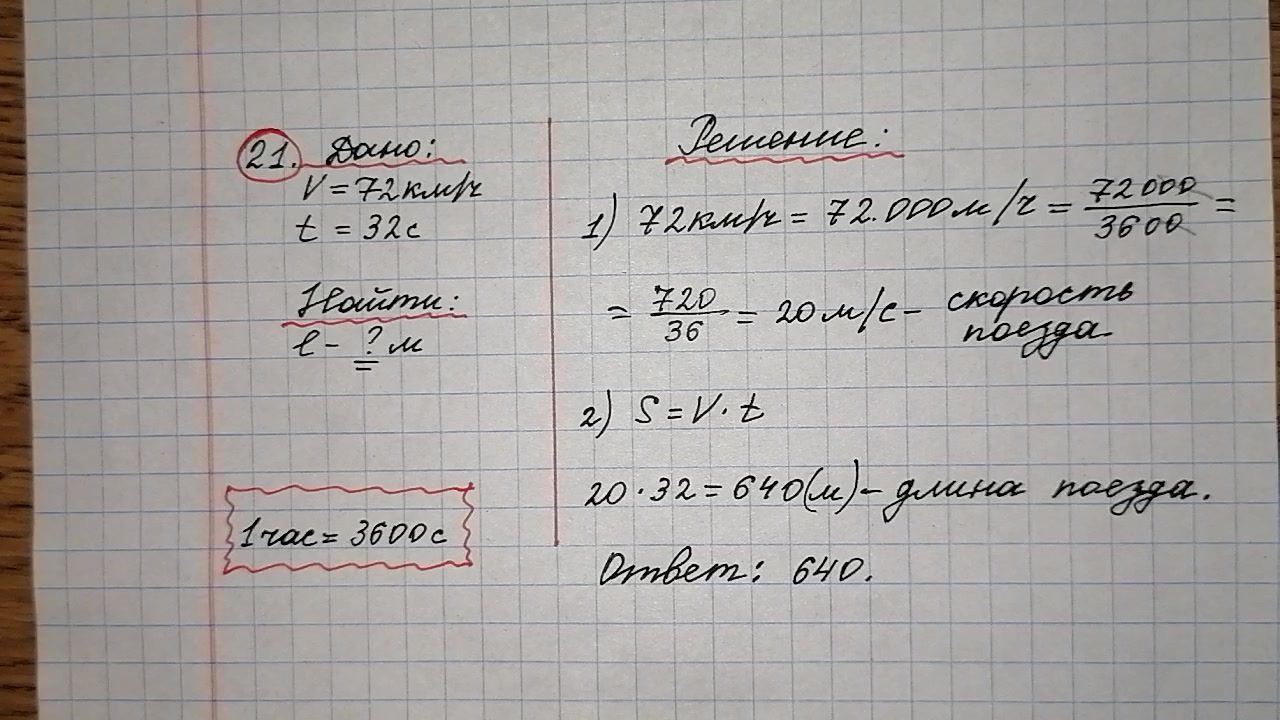 21. Дано:
V = 72 км/ч
t = 32 с
Найти:
ℓ - ? м
1 час = 3600 с
Решение:
1) 72 км/ч = 72.000 м/ч = 72000/3600 =
= 720/36 = 20 м/с – скорость
поезда
2) S = V · t
20 · 32 = 640 (м) – длина поезда.
Ответ: 640.